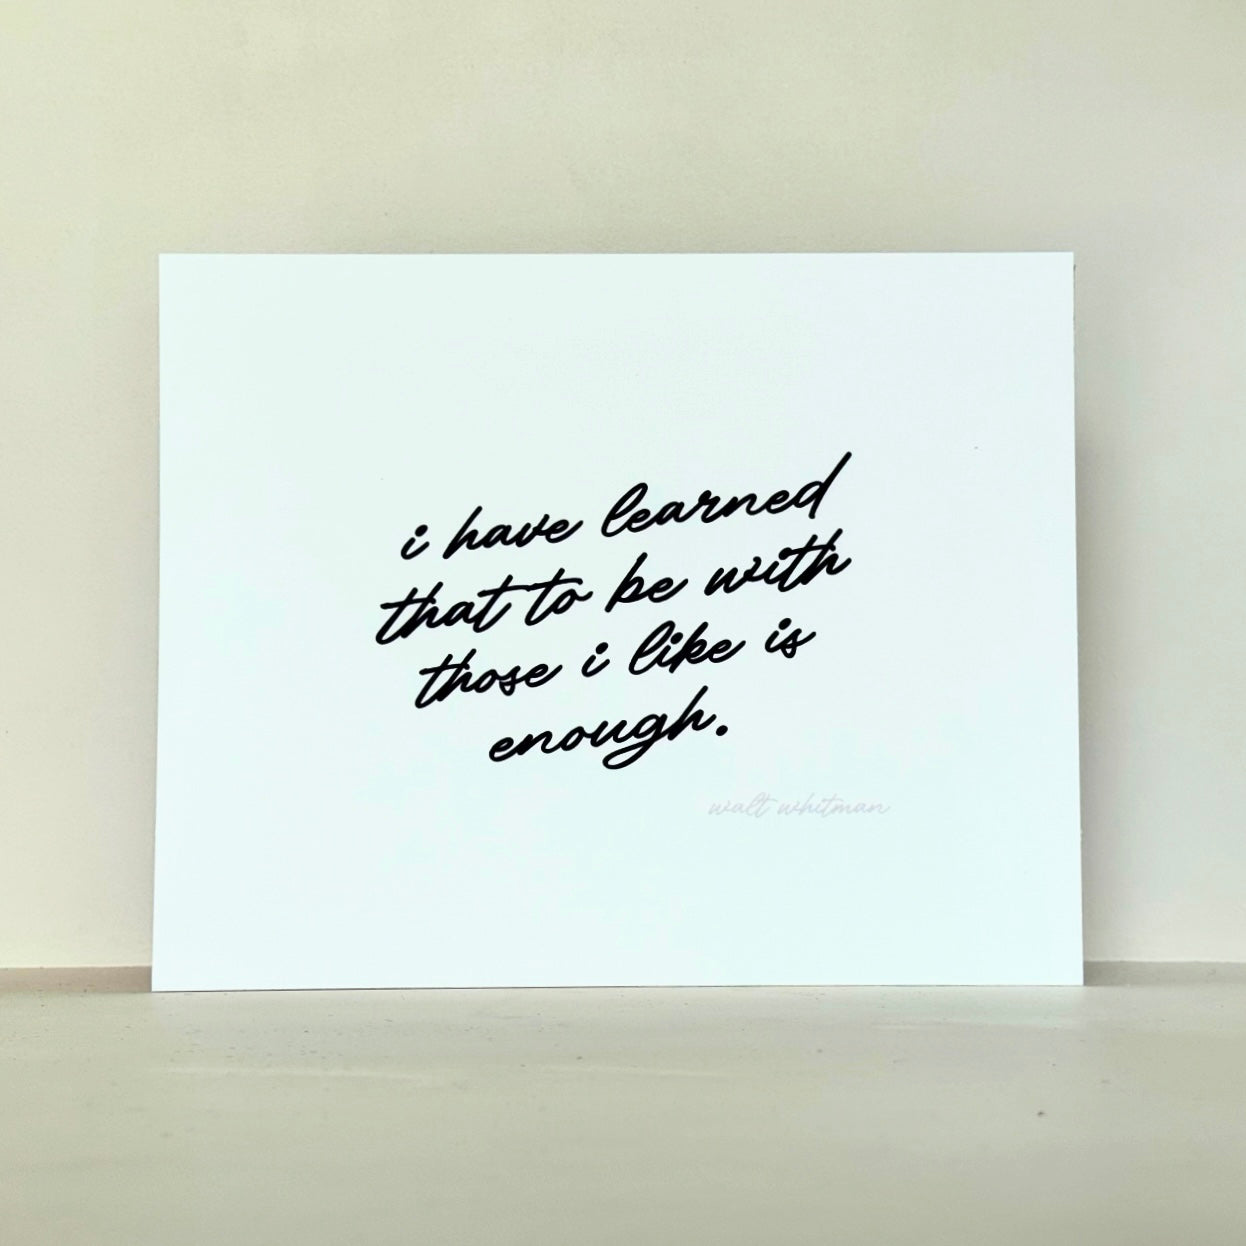 i have learned
that to be with
those i like is
enough.
walt whitman